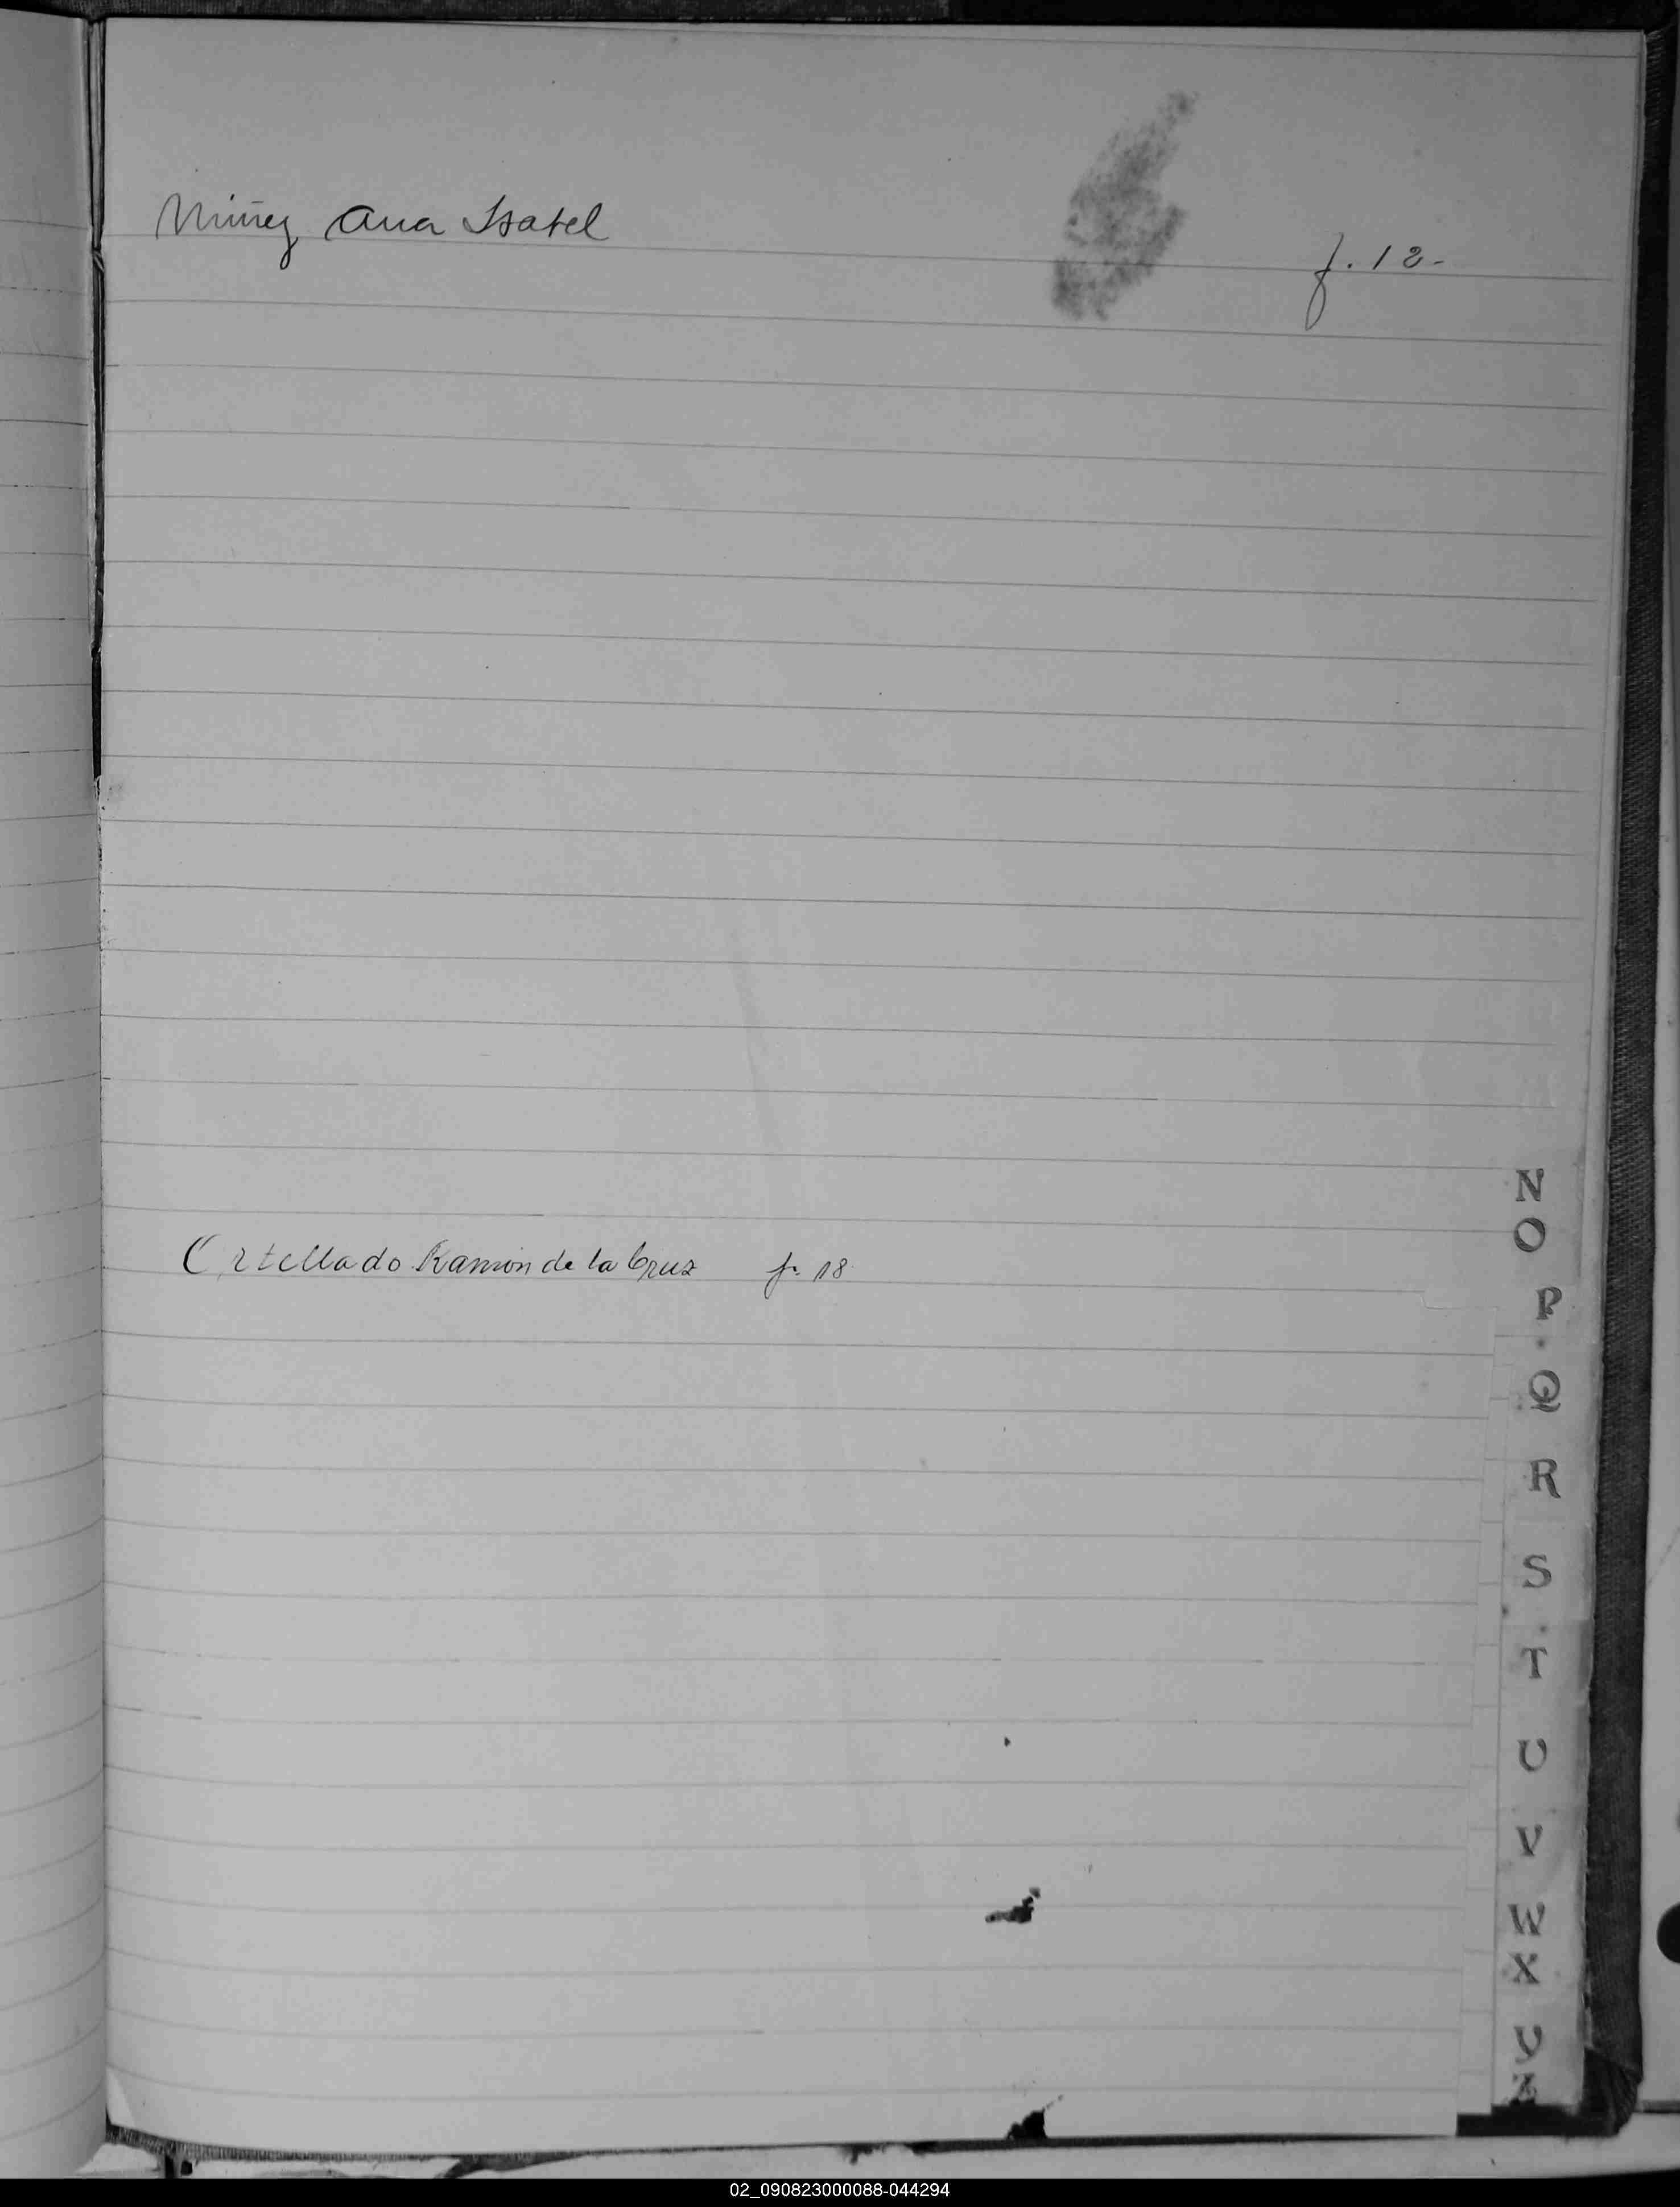 Núñez Ana Isabel f. 12-
Ortellado Ramón de la Cruz f. 18
N
O
P
Q
R
S
T
U
V
W
X
Y
Z
02_090823000088-044294